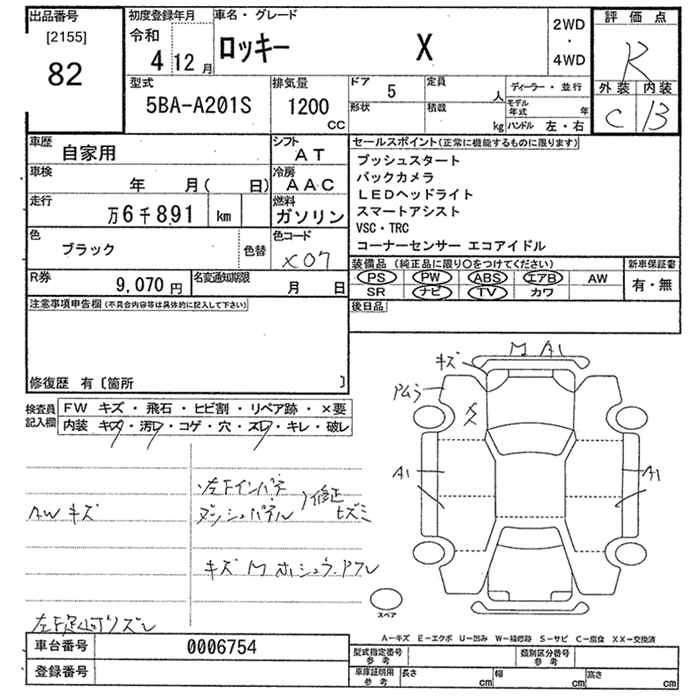 出品番号
[2155]
82
初度登録年月
令和
4 12月
車名・グレード
ロッキー X
2WD
・
4WD
評価点
R
外装 内装
C B
型式
5BA-A201S
排気量
1200
CC
ドア 5
形状
定員 人
積載 kg
ディーラー・並行
モデル年式 年
ハンドル 左・右
車歴
自家用
シフト
AT
車検
年 月( 日)
冷房
AAC
走行
万6千891 km
燃料
ガソリン
色
ブラック
色替
色コード
X07
R券 9,070円
名変通知期限 月 日
セールスポイント(正常に機能するものに限ります)
プッシュスタート
バックカメラ
LEDヘッドライト
スマートアシスト
VSC・TRC
コーナーセンサー エコアイドル
装備品(純正品に限り○をつけてください)
PS PW ABS エアB AW
SR ナビ TV カワ
新車保証書
有・無
後日品
注意事項申告欄(不具合内容等は具体的に記入して下さい)
修復歴 有〔箇所 〕
検査員
記入欄
FW キズ・飛石・ヒビ割・リペア跡・×要
内装 キズ・汚レ・コゲ・穴・ズレ・キレ・破レ
左下インパネ
ダッシュパネル
修正
ヒズミ
AWキズ
キズ M
キズ
M A1
A1
A1
スペア
A−キズ E−エクボ U−凹み W−補修跡 S−サビ C−腐食 XX−交換済
車台番号 0006754
登録番号
型式指定番号
参考
類別区分番号
参考
車庫証明用
参考
長さ cm
幅 cm
高さ cm